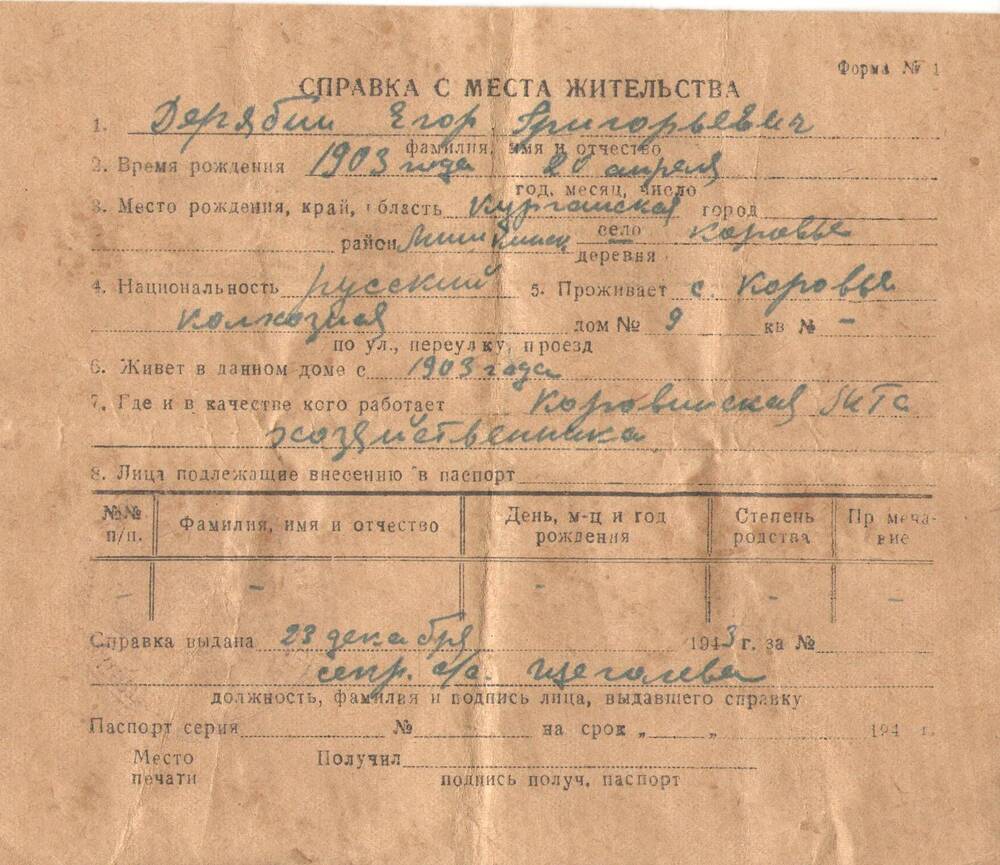 Форма № 1
СПРАВКА С МЕСТА ЖИТЕЛЬСТВА
1. Дерябин Егор Григорьевич
фамилия, имя и отчество
2. Время рождения 1903 года 20 апреля
год, месяц, число
3. Место рождения, край, область Курганская город
район Мишкинск село Коровье
деревня
4. Национальность русский 5. Проживает с. Коровье
Колхозная дом № 9 кв № –
по ул., переулку, проезд
6. Живет в данном доме с 1903 года
7. Где и в качестве кого работает Коровинская МТС
хозяйственника
8. Лица подлежащие внесению в паспорт
№№ п/п. Фамилия, имя и отчество День, м-ц и год рождения Степень родства Примечание
– – – – –
Справка выдана 23 декабря 1943 г. за №
секр. с/с. Щеголева
должность, фамилия и подпись лица, выдавшего справку
Паспорт серия № на срок „ „ 194 г.
Место печати Получил
подпись получ. паспорт